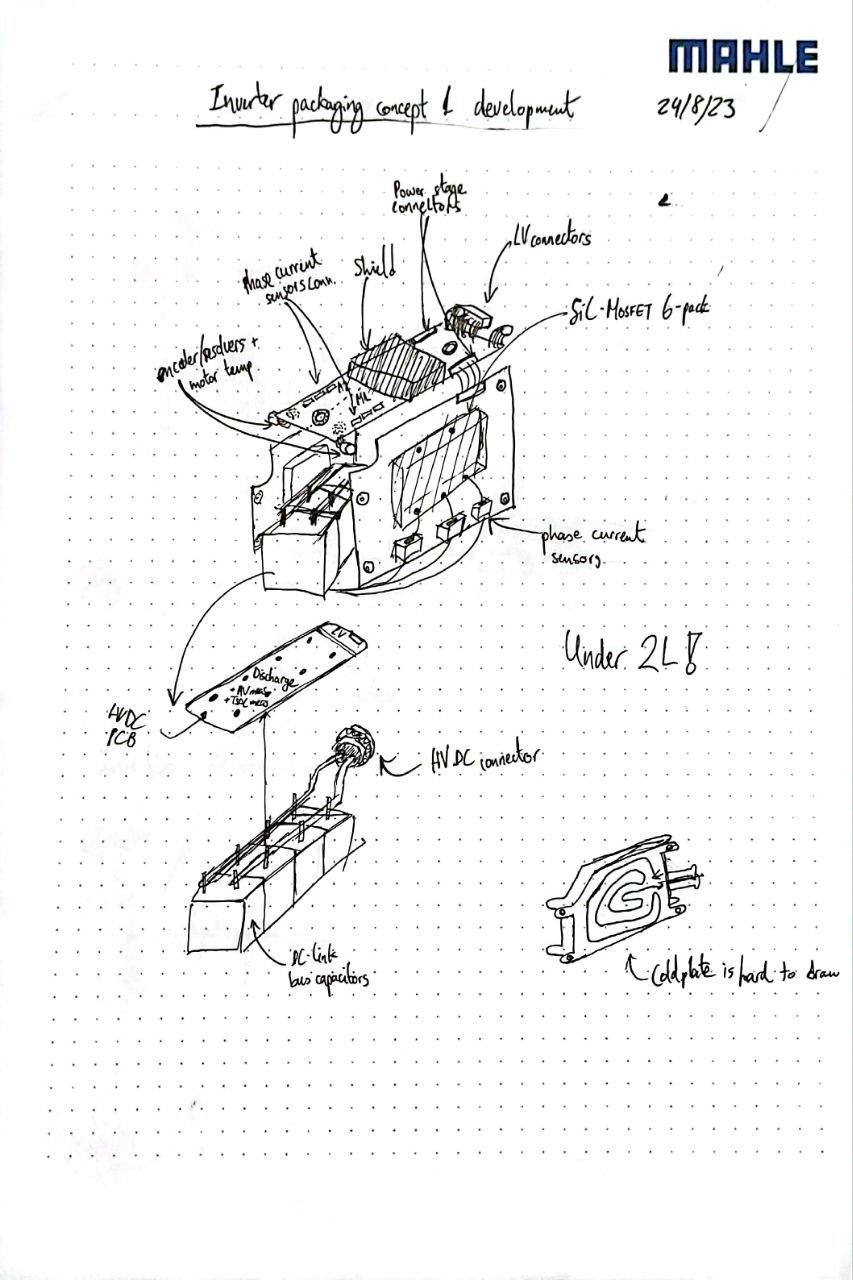 MAHLE
Inverter packaging concept 1 development
24/8/23
Power stage
connectors
LV connectors
Shield
Phase current
sensors conn.
SiC-MOSFET 6-pack
encoder/resolvers +
motor temp
phase current
sensors
Under 2L!
LV
Discharge
+ HV meas
HVDC
PCB
HVDC connector
DC-link
bus capacitors
Coldplate is hard to draw